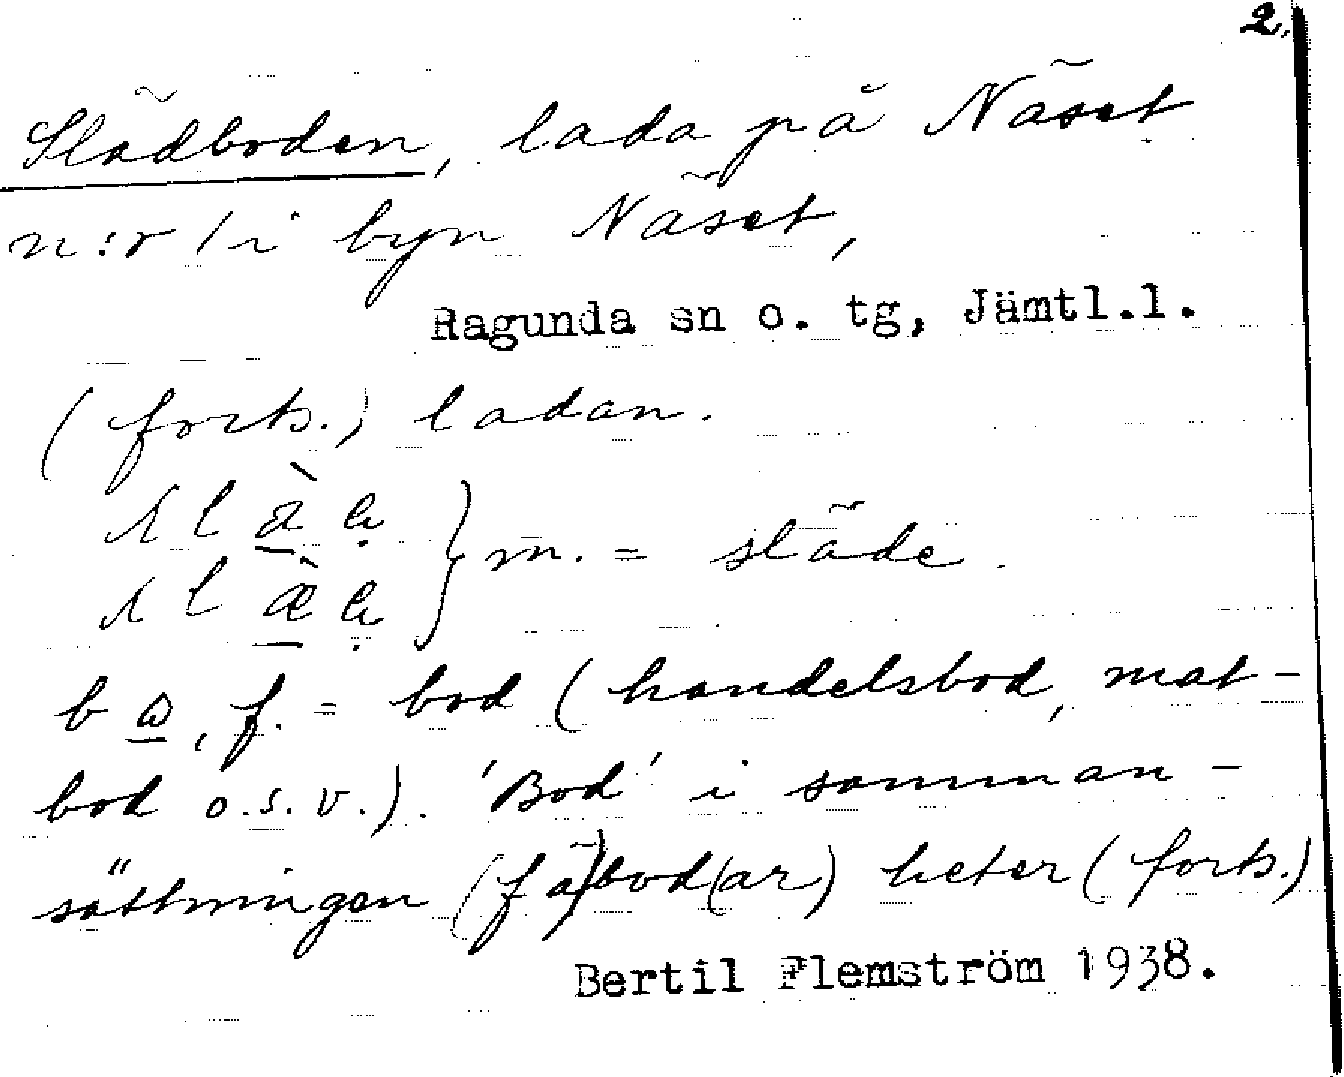 2.
Slädboden, lada på Näset
n:r 1 i byn Näset,
Ragunda sn o. tg, Jämtl.l.
(forts.) ladan.
slàe
slæ̀e } m. = släde.
b ω, f. = bod (handelsbod, mat-
bod o.s.v.). 'Bod' i samman-
sättningen (fä)bod(ar) heter (forts.)
Bertil Flemström 1938.